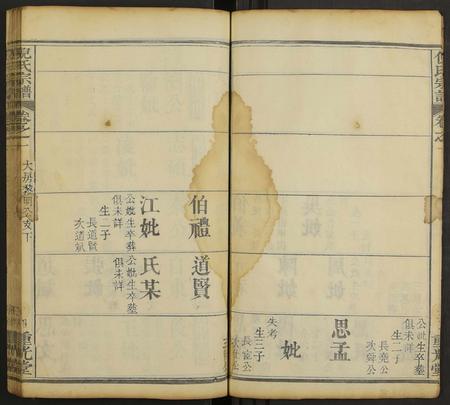 倪氏宗譜
卷之一
公妣生卒葬
俱未詳
生二子
長堯公
次舜公
思孟
妣
失考
生三子
長
伯禮
江妣
公妣生卒葬
俱未詳
生二子
長道賢
次道斌
道賢
氏某
公妣生卒葬
俱未詳
倪氏宗譜
卷之一
大房發明公支下
重光堂